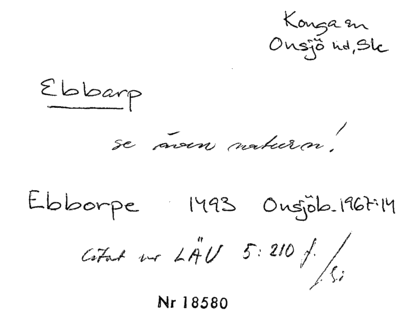 Konga sn
Onsjö hd, Sk
Ebbarp
se även naturn!
Ebborpe 1493 Onsjöb. 1967:14
Citat ur LÄU 5:210 f.
Nr 18580